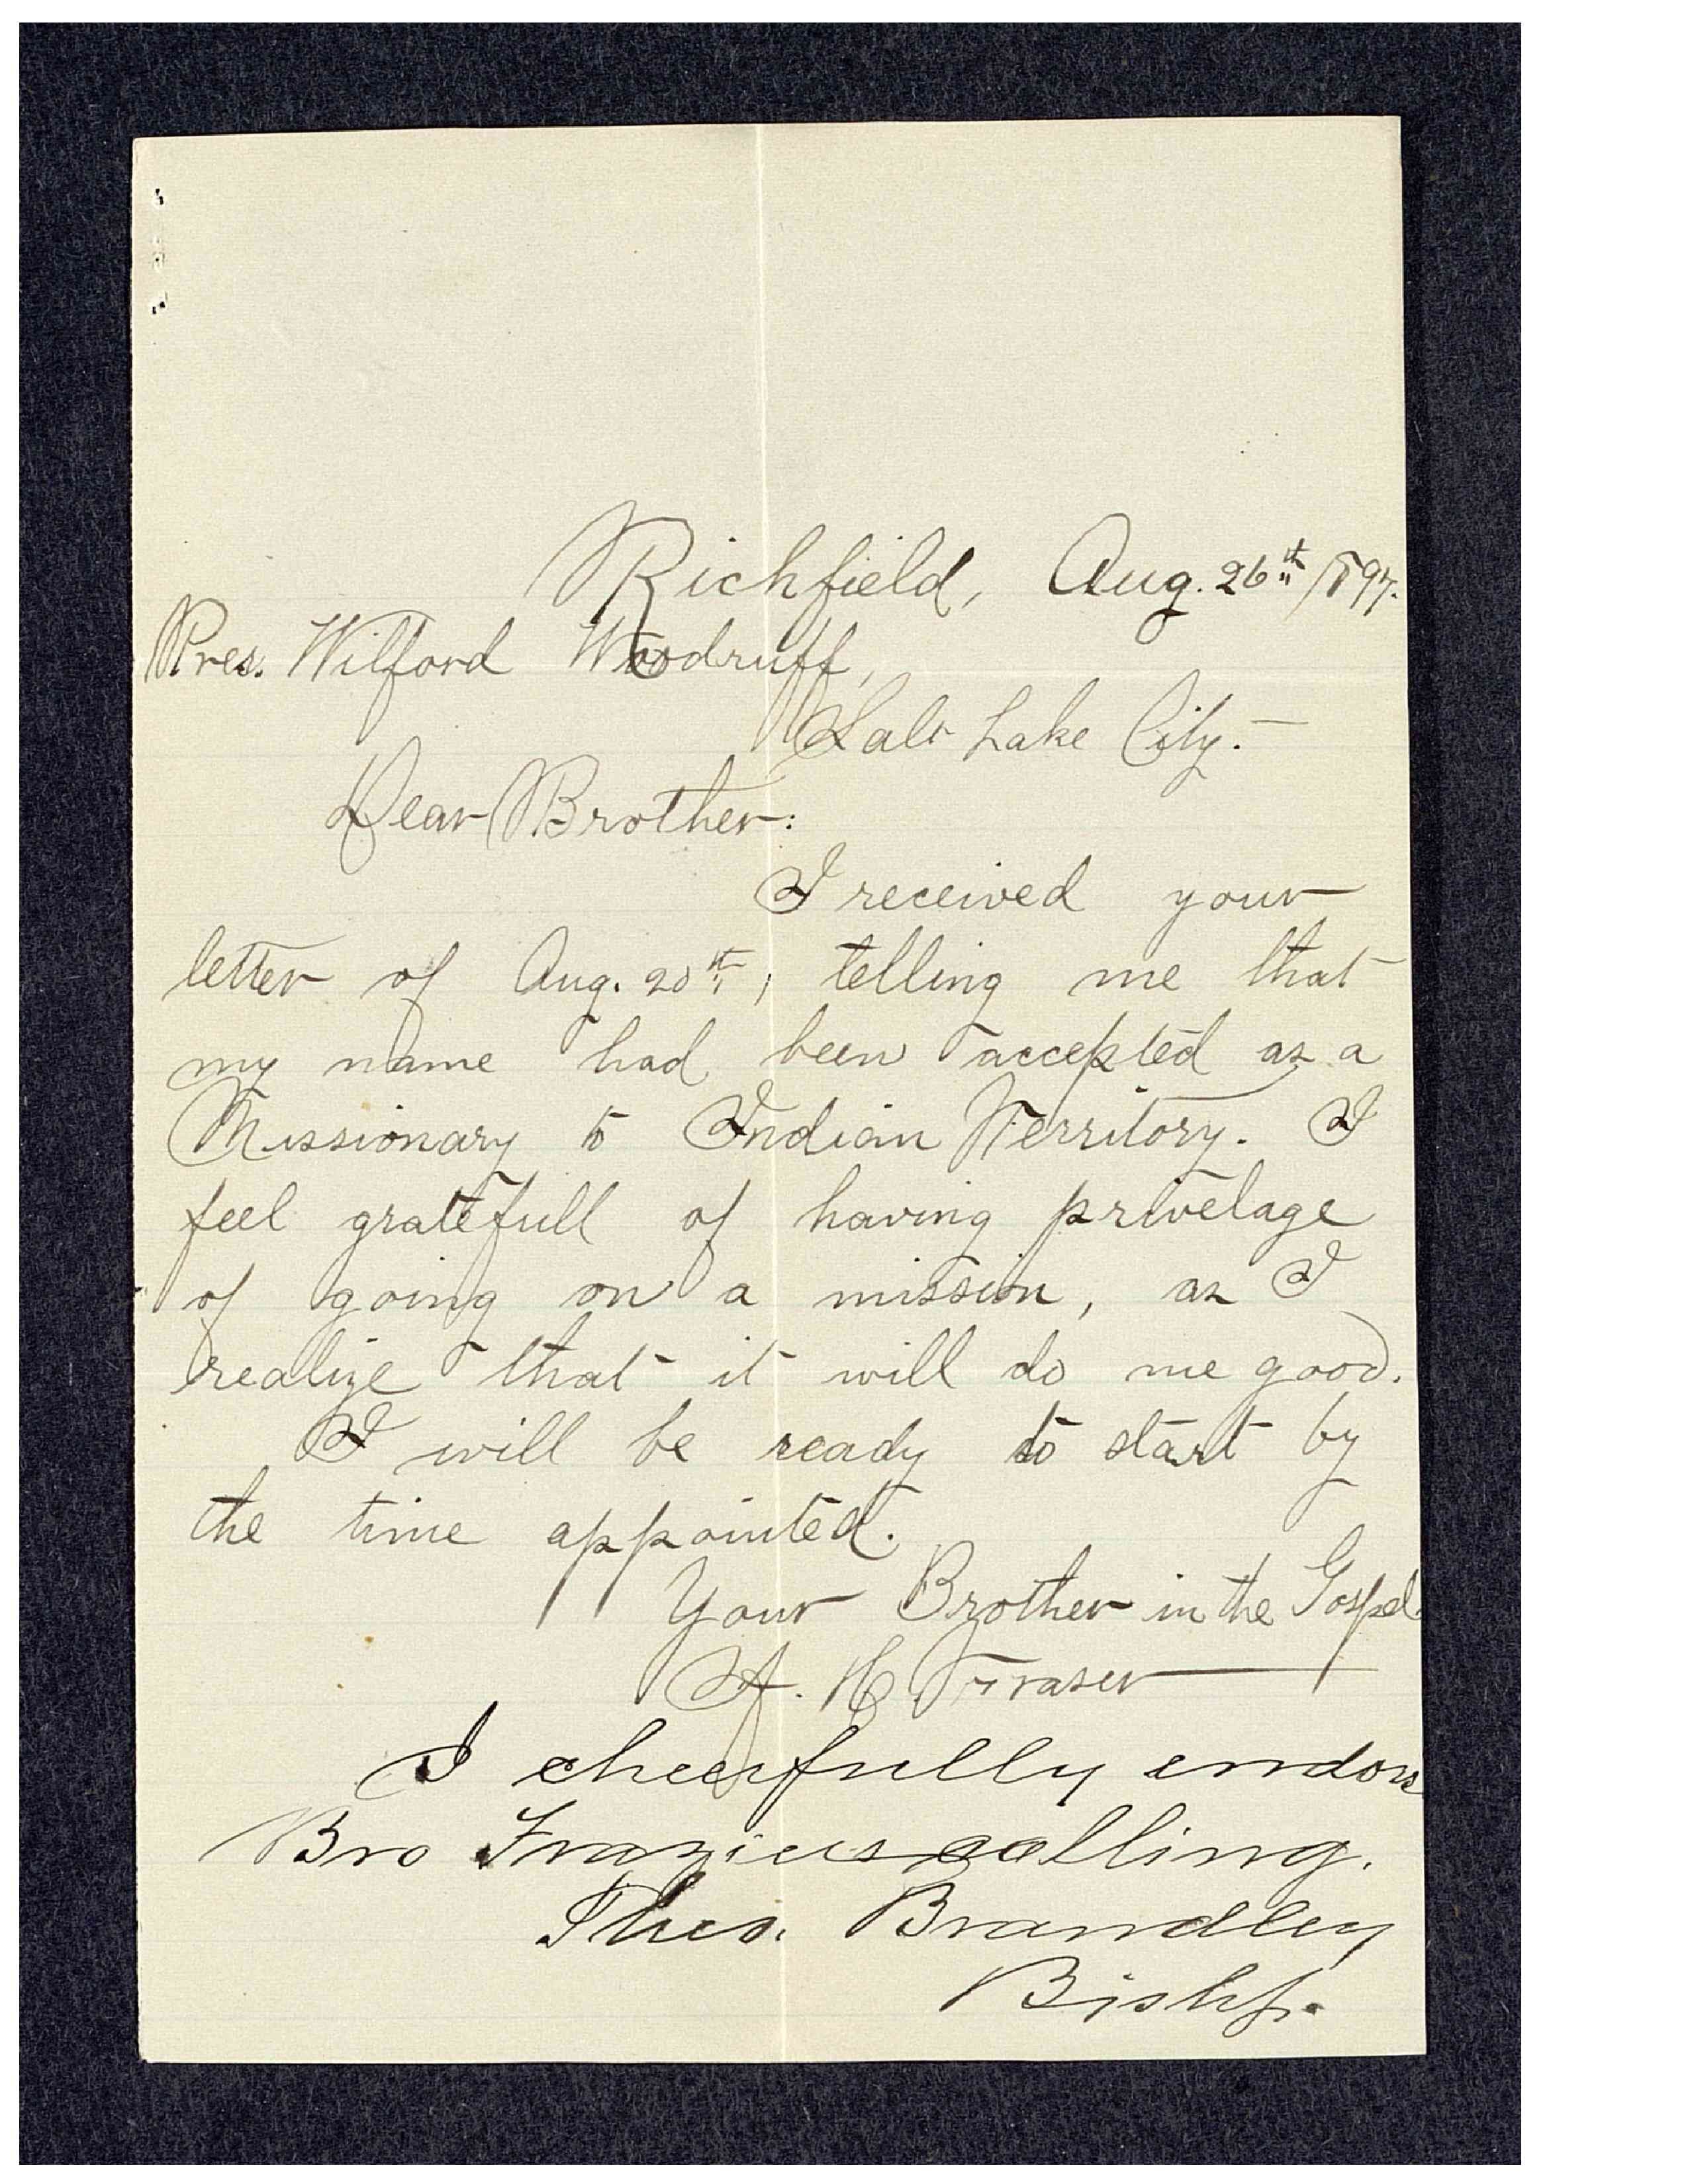 Richfield, Aug. 26th 1897.
Pres. Wilford Woodruff,
Salt Lake City.
Dear Brother:
I received your
letter of Aug. 20th, telling me that
my name had been accepted as a
Missionary to Indian Territory. I
feel gratefull of having privelage
of going on a mission, as I
realize that it will do me good.
I will be ready to start by
the time appointed.
Your Brother in the Gospel.
A. H. Fraser
I cheerfully endors
Bro Fraziers calling.
Theo. Brandley
Bishp.